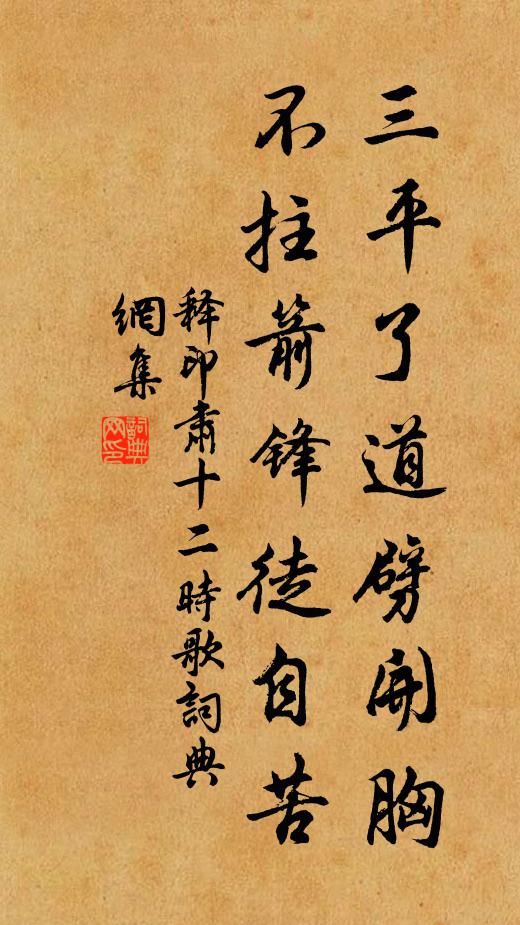 三平了道劈開胸
不拄箭鋒徒自苦
释印肅十二時歌詞典
網集
詞典
网印